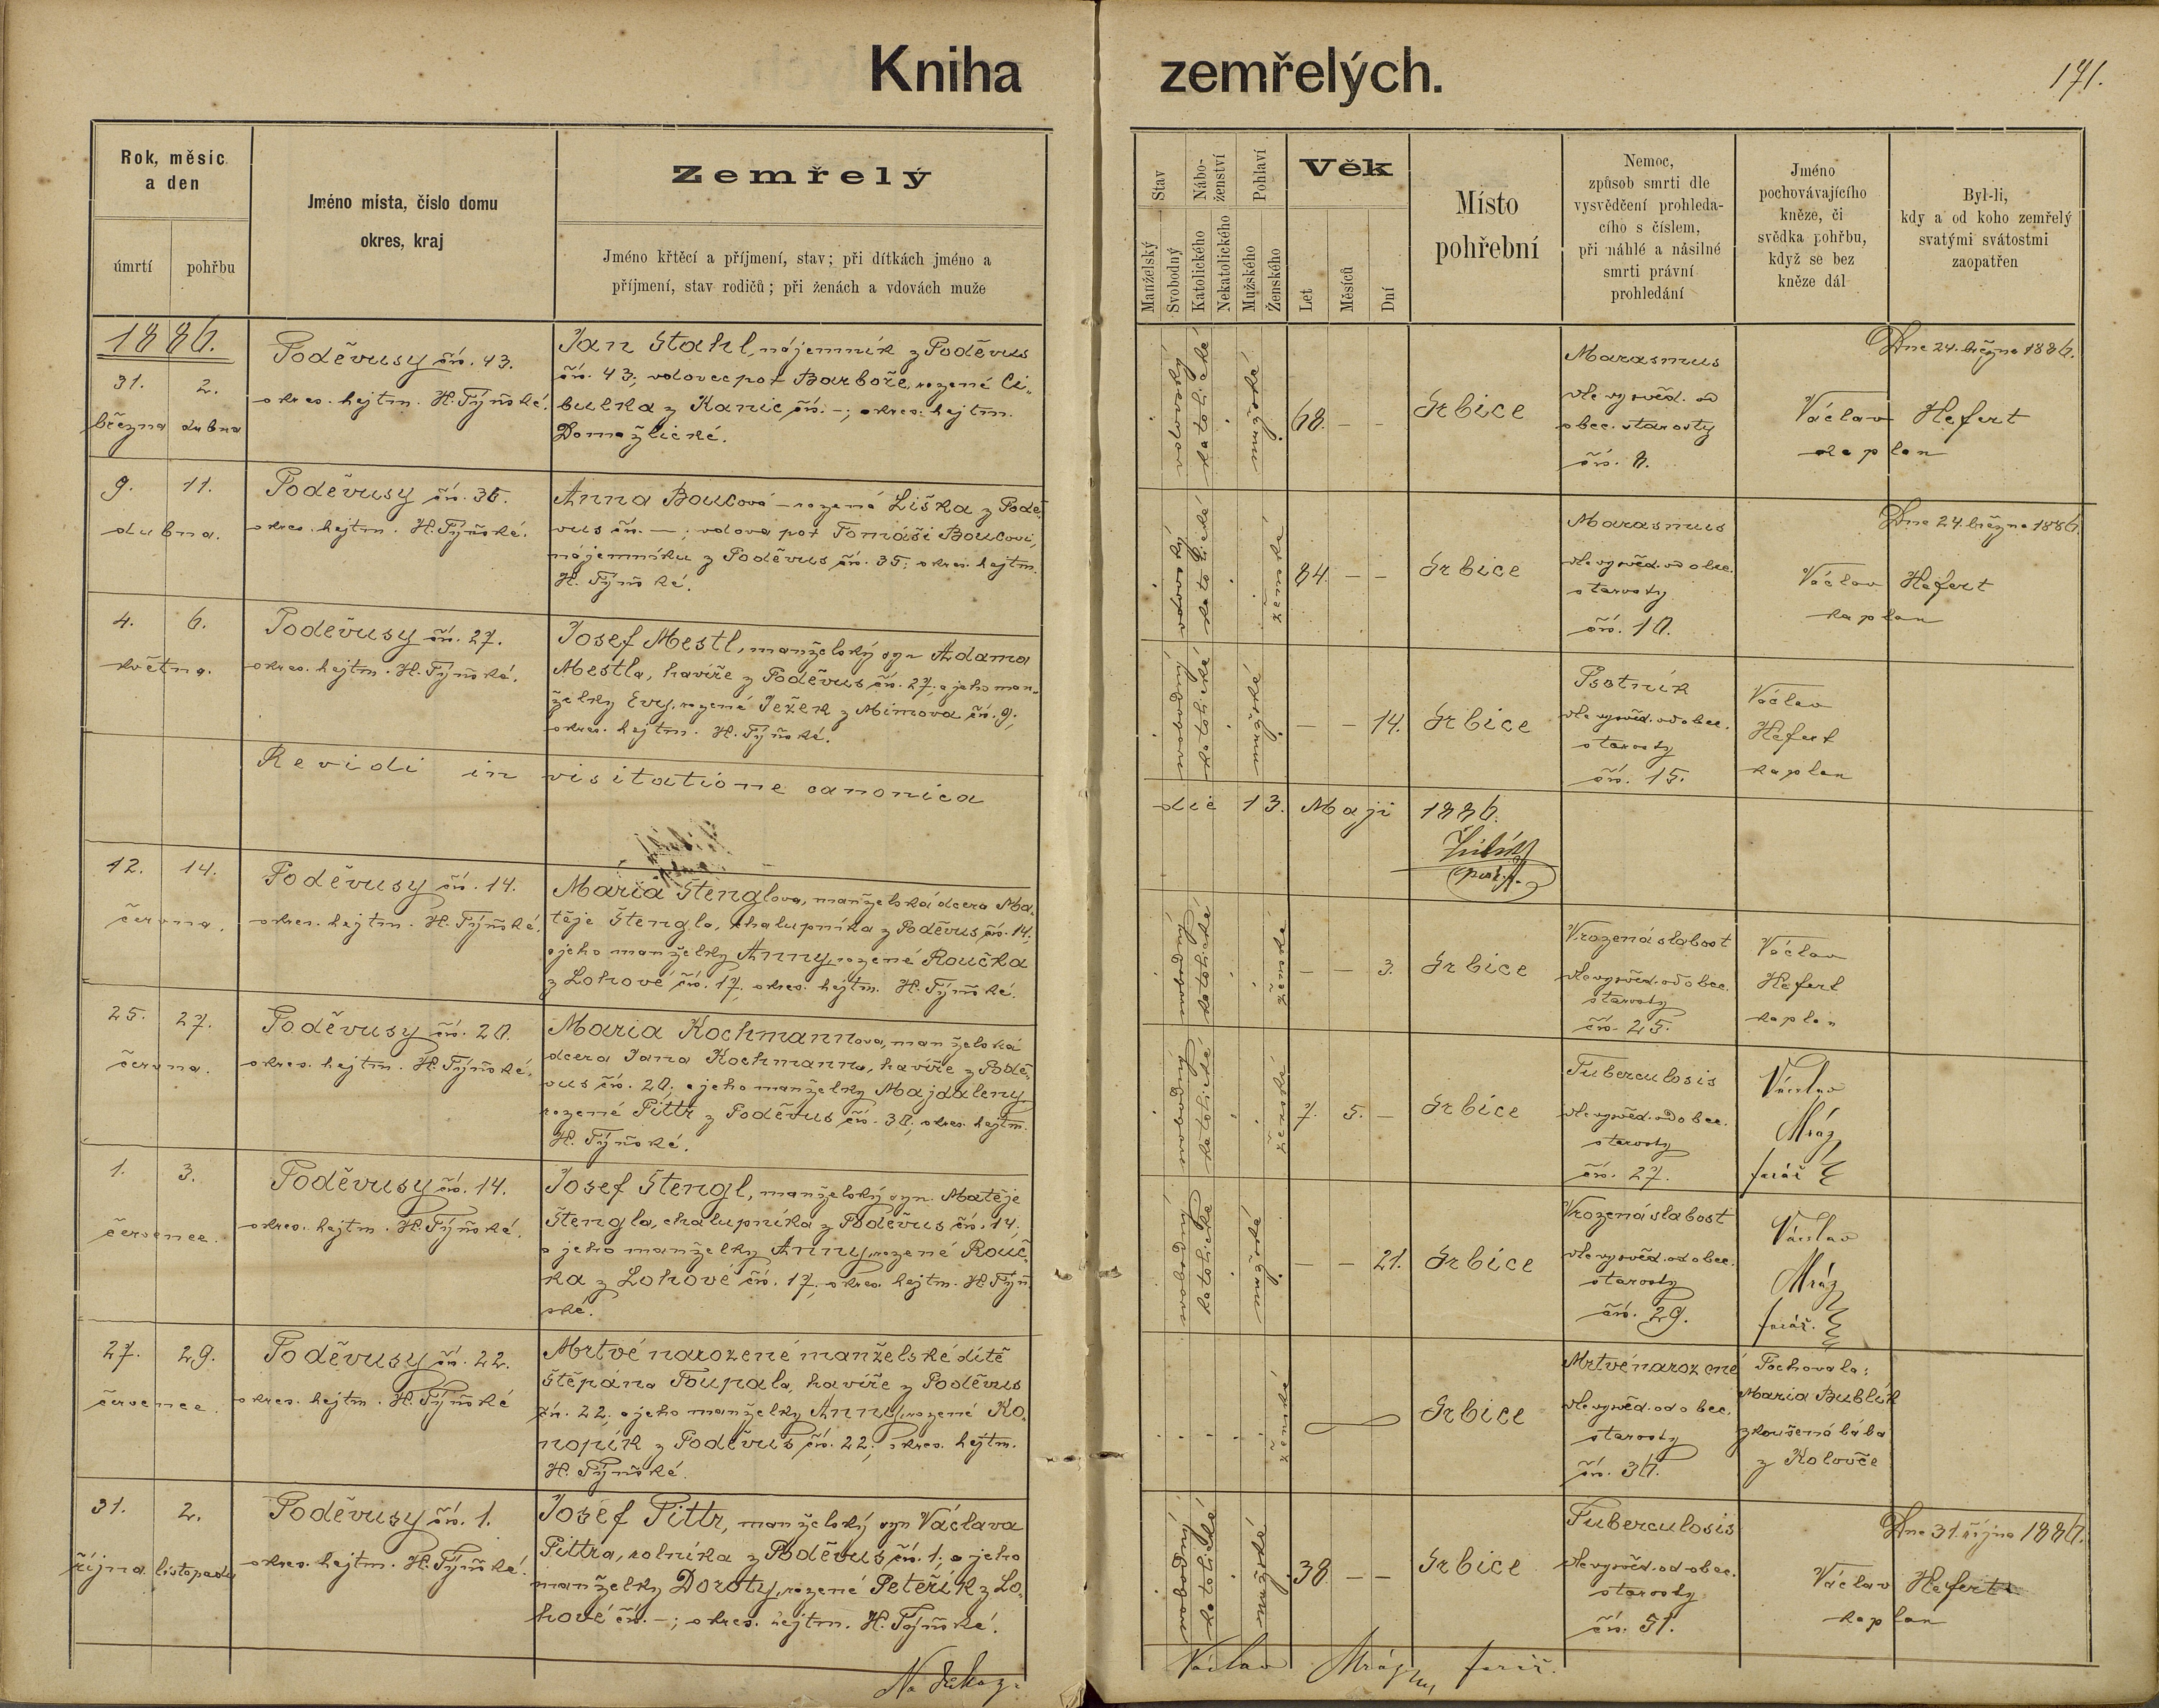 Kniha zemřelých.
171.
Rok, měsíc
a den
úmrtí
pohřbu
Jméno místa, číslo domu
okres, kraj
Zemřelý
Jméno křtěcí a příjmení, stav; při dítkách jméno a
příjmení, stav rodičů; při ženách a vdovách muže
Stav
Manželský
Svobodný
Nábo-
ženství
Katolického
Nekatolického
Pohlaví
Mužského
Ženského
Věk
Let
Měsíců
Dní
Místo
pohřební
Nemoc,
způsob smrti dle
vysvědčení prohleda-
cího s číslem,
při náhlé a násilné
smrti právní
prohledání
Jméno
pochovávajícího
kněze, či
svědka pohřbu,
když se bez
kněze dál
Był-li,
kdy a od koho zemřelý
svatými svátostmi
zaopatřen
1886.
31. 2.
března dubna
Poděvusy čís. 43.
okres. hejtm. H. Týňské.
Jan Stahl, nájemník z Poděvus
čís. 43; vdovec po † Barboře, rozené Ci-
bulka z Kanic čís. -; okres. hejtm.
Domažlické.
vdovecký
katolické
mužské
68. - -
Srbice
Marasmus
dle vysvěd. od
obec. starosty
čís. 8.
Dne 24. března 1886.
Václav Hefert
kaplan
9. 11.
dubna.
Poděvusy čís. 35.
okres. hejtm. H. Týňské.
Anna Boucová - rozená Liška z Podě-
vus čís. -; vdova po † Tomáši Boucovi,
nájemníku z Poděvus čís. 35; okres. hejtm.
H. Týňské.
vdovský
katolické
ženské
84. - -
Srbice
Marasmus
dle vysvěd. od obec.
starosty
čís. 10.
Dne 24. března 1886.
Václav Hefert
kaplan
4. 6.
května.
Poděvusy čís. 27.
okres. hejtm. H. Týňské.
Josef Mestl, manželský syn Adama
Mestla, havíře z Poděvus čís. 27; a jeho man-
želky Evy, rozené Ježek z Mimova čís. 9;
okres. hejtm. H. Týňské.
svobodný
katolické
mužské
- - 14.
Srbice
Psotník
dle vysvěd. od obec.
starosty
čís. 15.
Václav
Hefert
kaplan
Revidi in visitatione canonica
die 13. Maji 1886.
12. 14.
června.
Poděvusy čís. 14.
okres. hejtm. H. Týňské.
Maria Štenglova, manželská dcera Ma-
těje Štengla, chalupníka z Poděvus čís. 14;
a jeho manželky Anny, rozené Roučka
z Lohové čís. 17, okres. hejtm. H. Týňské.
svobodný
katolické
ženské
- - 3.
Srbice
Vrozená slabost
dle vysvěd. od obec.
starosty
čís. 25.
Václav
Hefert
kaplan
25. 27.
června.
Poděvusy čís. 20.
okres. hejtm. H. Týňské.
Maria Kochmannova, manželská
dcera Jana Kochmanna, havíře z Podě-
vus čís. 20; a jeho manželky Majdaleny,
rozené Pittr z Poděvus čís. 30; okres. hejtm.
H. Týňské.
svobodný
katolické
ženské
7. 5. -
Srbice
Tuberculosis
dle vysvěd. od obec.
starosty
čís. 27.
Václav
Mráz
farář
1. 3.
července.
Poděvusy čís. 14.
okres. hejtm. H. Týňské.
Josef Štengl, manželský syn Matěje
Štengla, chalupníka z Poděvus čís. 14;
a jeho manželky Anny, rozené Rouč-
ka z Lohové čís. 17; okres. hejtm. H. Týň-
ské.
svobodný
katolické
mužské
- - 21.
Srbice
Vrozená slabost
dle vysvěd. od obec.
starosty
čís. 29.
Václav
Mráz
farář.
27. 29.
července.
Poděvusy čís. 22.
okres. hejtm. H. Týňské
Mrtvé narozené manželské dítě
Štěpána Toupala, havíře z Poděvus
čís. 22; a jeho manželky Anny, rozené Ko-
nopík z Poděvus čís. 22; okres. hejtm.
H. Týňské.
ženské
Srbice
Mrtvé narozené
dle vysvěd. od obec.
starosty
čís. 36.
Pochovala:
Maria Bublík
zkoušená bába
z Koloveče
31. 2.
října listopadu
Poděvusy čís. 1.
okres. hejtm. H. Týňské.
Josef Pittr, manželský syn Václava
Pittra, rolníka z Poděvus čís. 1; a jeho
manželky Doroty, rozené Peteřík z Lo-
hové čís. -; okres. hejtm. H. Týňské.
svobodný
katolické
mužské
38 - -
Srbice
Tuberculosis
dle vysvěd. od obec.
starosty
čís. 51.
Dne 31. října 1886.
Václav Hefert
kaplan
Na důkaz:
Václav Mráz farář.